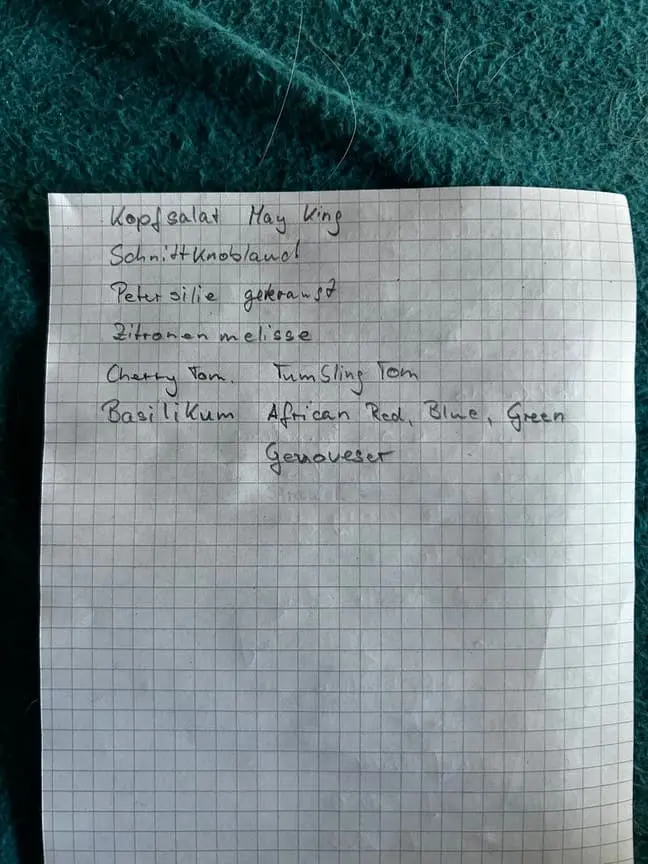 Kopfsalat May King
Schnittknoblauch
Petersilie gekraust
Zitronenmelisse
Cherry Tom. Tumbling Tom
Basilikum African Red, Blue, Green
Genoveser